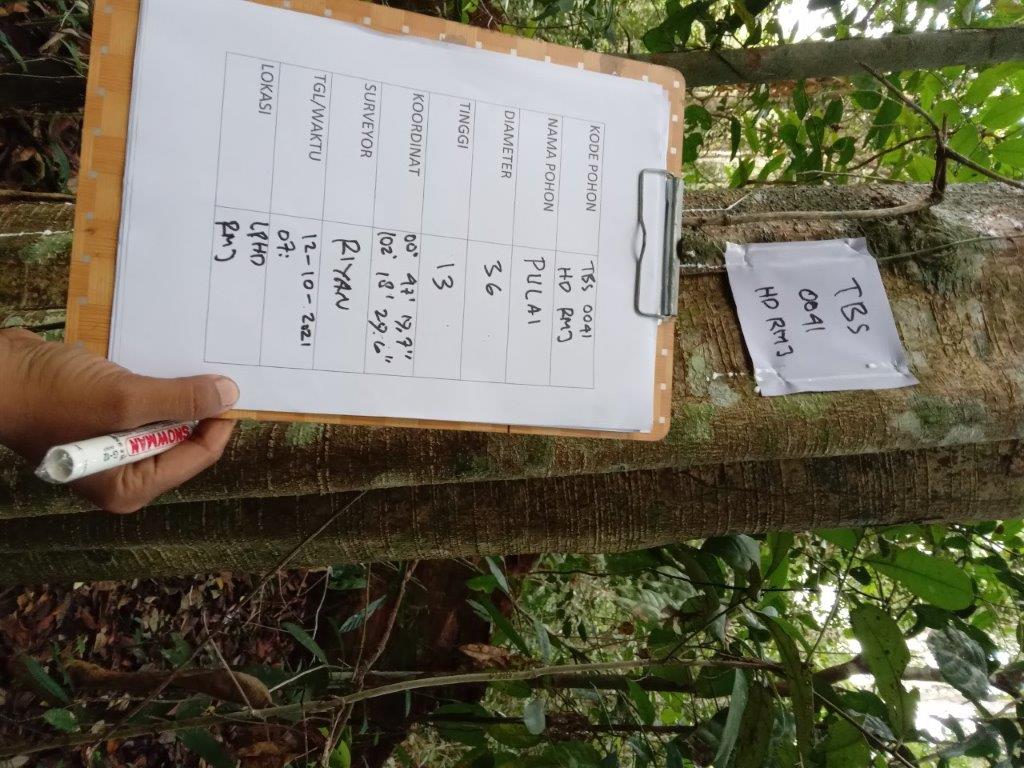 KODE POHON TBS 0041
HD RMJ
NAMA POHON PULAI
DIAMETER 36
TINGGI 13
KOORDINAT 00° 47' 19,7"
102° 18' 29,6"
SURVEYOR RIYAN
TGL/WAKTU 12-10-2021
07:
LOKASI LPHD
RMJ
TBS
0041
HD RMJ
SNOWMAN